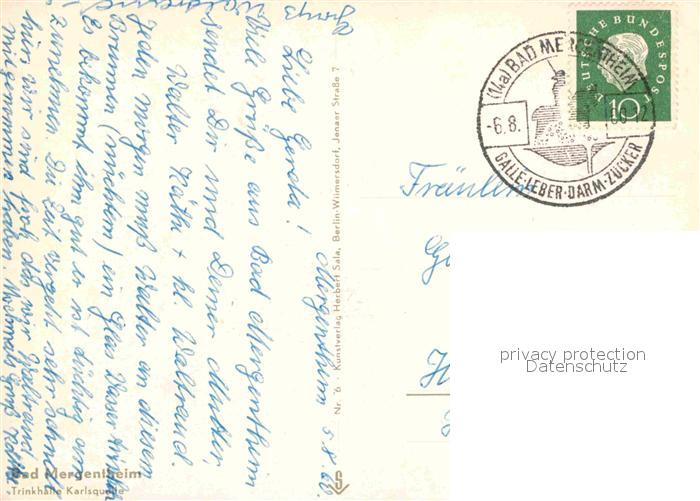 Mergentheim 5.8.60.
Liebe Gerda!
Viele Grüße aus Bad Mergentheim
sendet Dir und Deiner Mutter,
Walter Käthe + kl. Waltraud.
Jeden morgen muß Walter an diesem
Brunnen (nüchtern) ein Glas Wasser trinken
Es bekommt ihm gut er ist tüchtig am
zunehmen. Die Zeit vergeht sehr schnell
nun wir sind froh das wir Waltraud
mitgenommen haben. Nochmals Gruß Käthe
Walter
Nr. 6 · Kunstverlag Herbert Sala, Berlin-Wilmersdorf, Jenaer Straße 7
Bad Mergentheim
Trinkhalle Karlsquelle
S
DEUTSCHE BUNDESPOST
10
(14a) BAD MERGENTHEIM
-6.8.
60-12
GALLE·LEBER·DARM·ZUCKER
Fräulein
privacy protection
Datenschutz